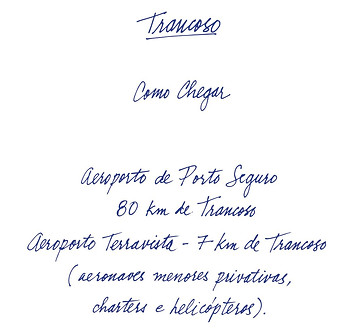 Trancoso
Como Chegar
Aeroporto de Porto Seguro
80 km de Trancoso
Aeroporto Terravista - 7 km de Trancoso
(aeronaves menores privativas,
charters e helicópteros).